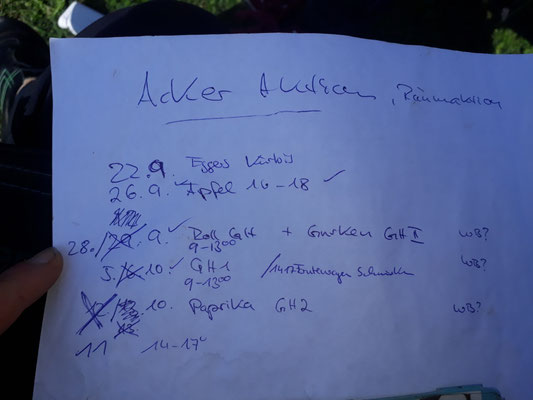 Acker Aktion, Räumaktion
22.9. Eggers Kürbis
26.9. ✓ Äpfel 16-18 ✓
28./ 9. ✓ Roll GH + Gurken GH II WB?
9-13:00
5. 10. ✓ GH1 /14:17 Erntewagen Schmücken WB?
9-13:00
10. Paprika GH2 WB?
11 14-17